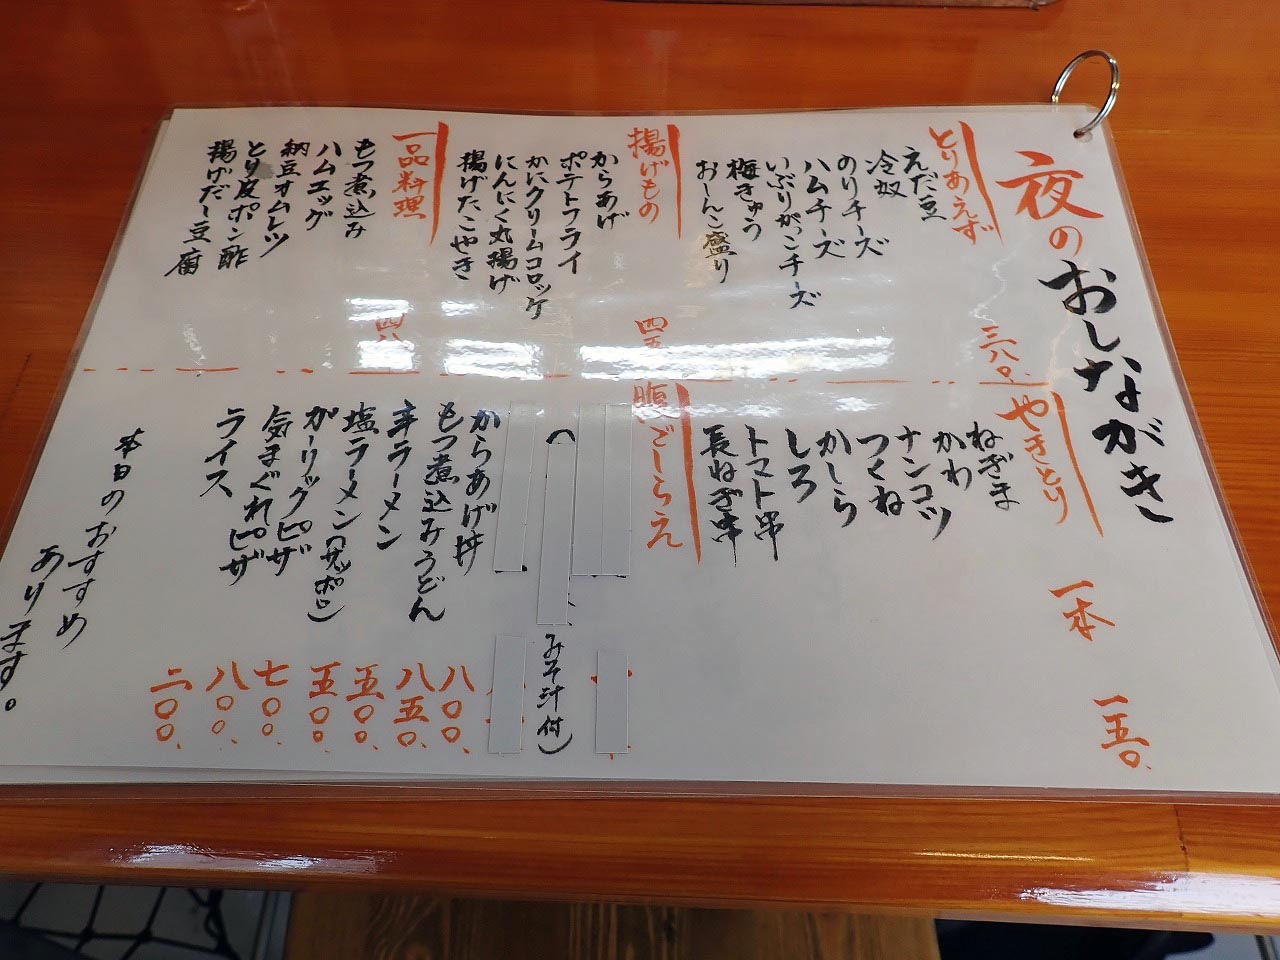 夜のおしながき
とりあえず
三八〇.
えだ豆
冷奴
のりチーズ
ハムチーズ
いぶりがっこチーズ
梅きゅう
おしんこ盛り
揚げもの
四五
からあげ
ポテトフライ
かにクリームコロッケ
にんにく丸揚げ
揚げたこやき
一品料理
四八
もつ煮込み
ハムエッグ
納豆オムレツ
とり皮ポン酢
揚げだし豆腐
やきとり
一本
一五〇.
ねぎま
かわ
ナンコツ
つくね
かしら
しろ
トマト串
長ねぎ串
腹ごしらえ
みそ汁付)
からあげ丼
八〇〇.
もつ煮込みうどん
八五〇.
辛ラーメン
五〇〇.
塩ラーメン(サッポロ)
五〇〇.
ガーリックピザ
七〇〇.
気まぐれピザ
八〇〇.
ライス
二〇〇.
本日のおすすめ
あります。